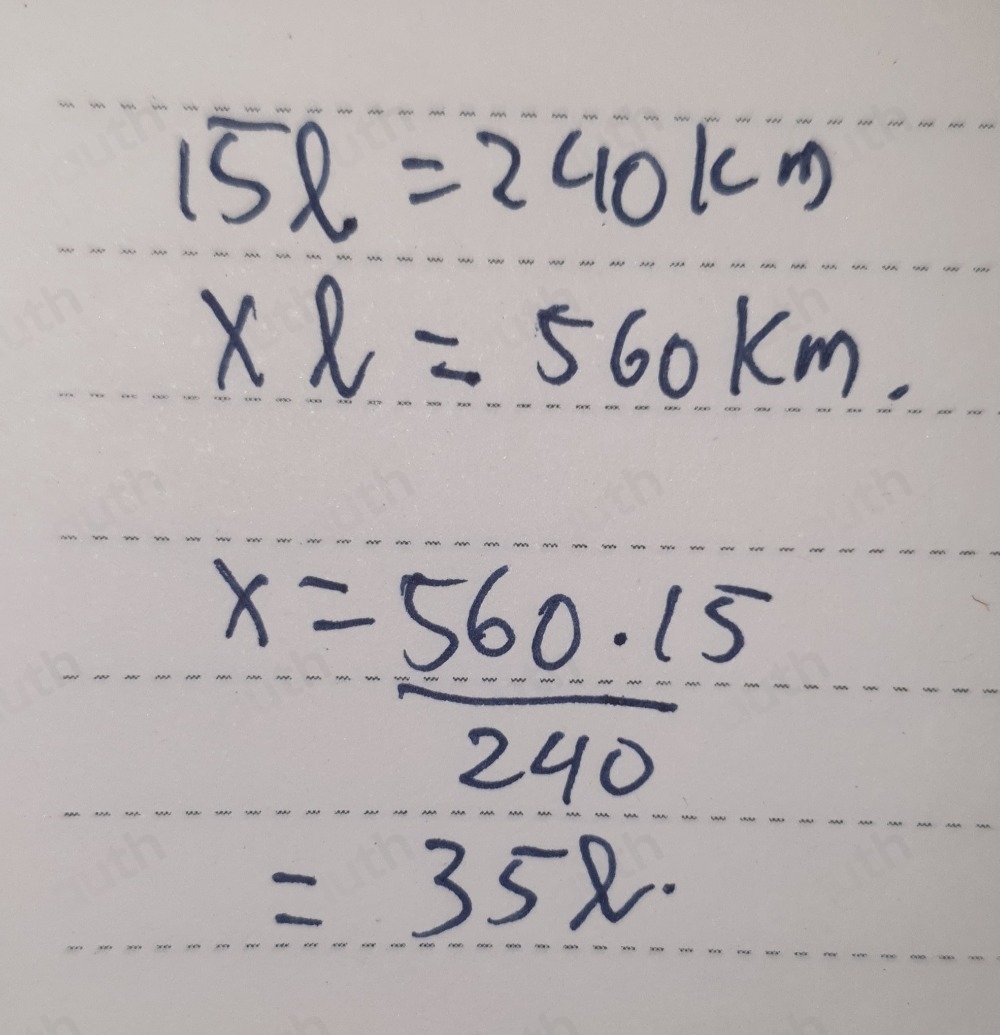 15l = 240km
x l = 560 Km.
x = 560 . 15
240
= 35l.